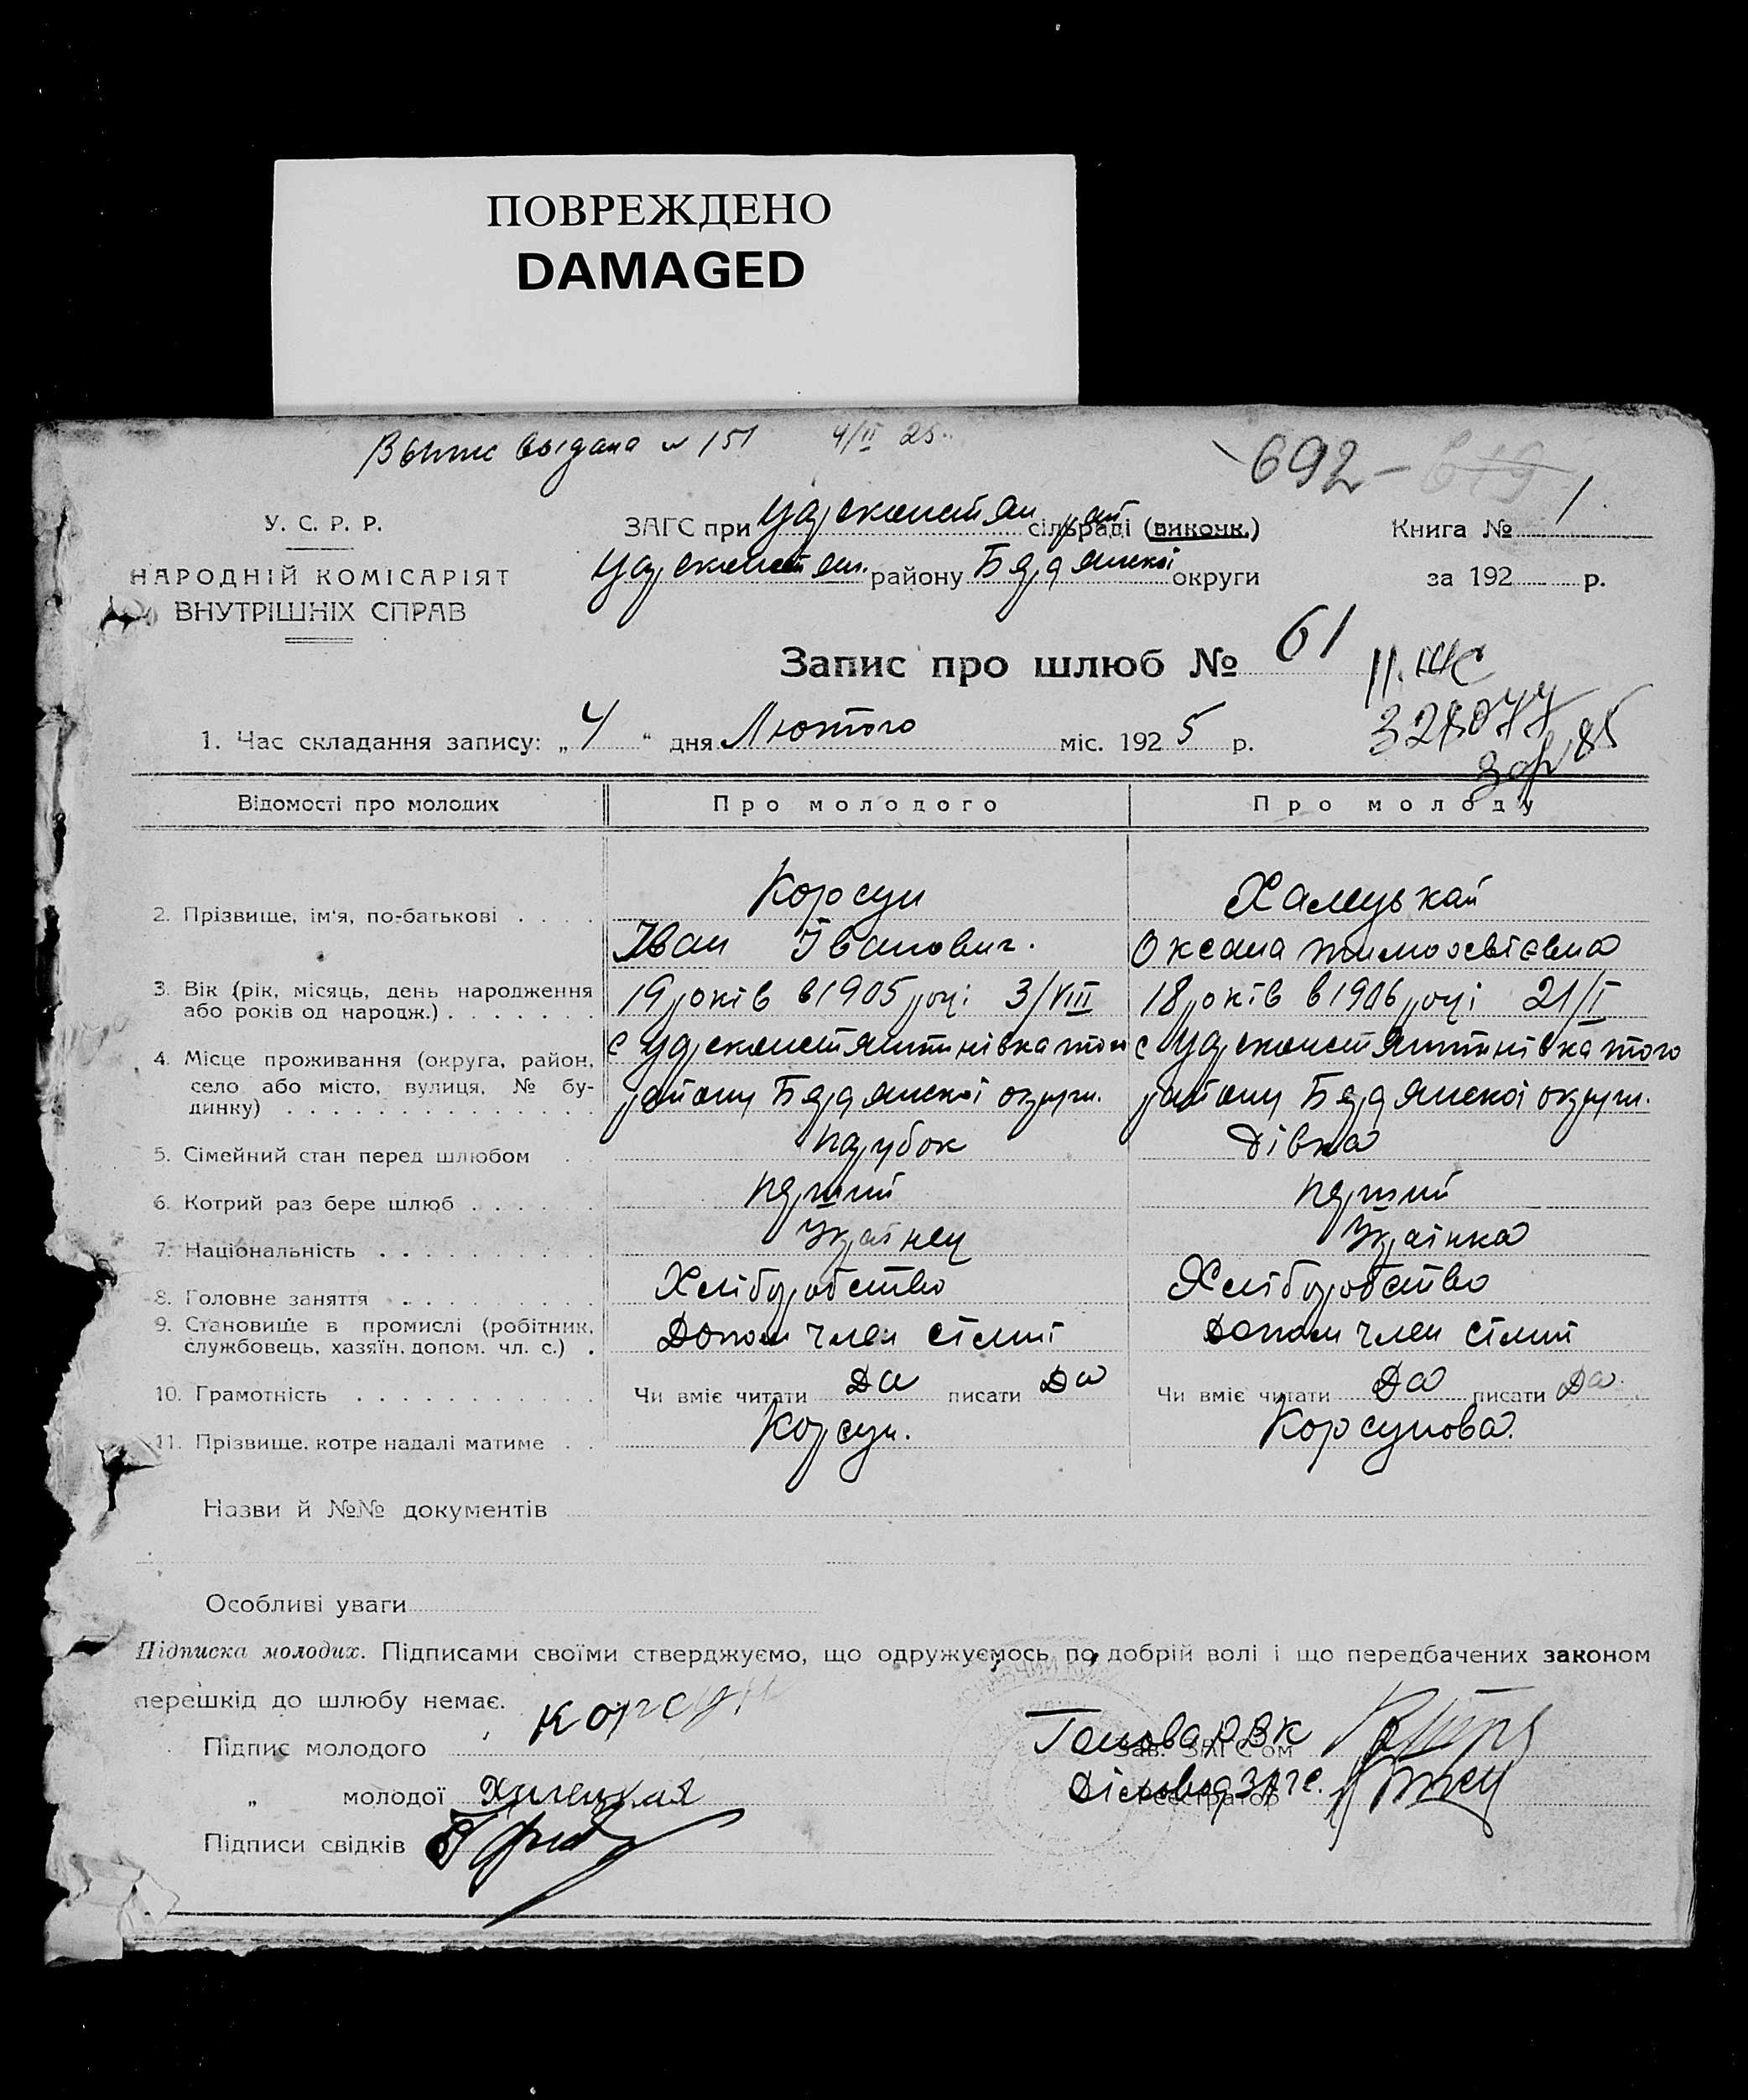 ПОВРЕЖДЕНО
DAMAGED
Выпис выдана № 151 4/II 25
692 – 619
У. С. Р. Р.
НАРОДНІЙ КОМІСАРІЯТ
ВНУТРІШНІХ СПРАВ
ЗАГС при Царсконстян рай сільраді (виконк.)
Царсконстян. району Бердянської округи
Книга № 1
за 192 р.
Запис про шлюб № 61
1. Час складання запису: „ 4 “ дня Лютого міс. 192 5 р.
Відомості про молодих Про молодого Про молоду
2. Прізвище, ім'я, по-батькові Корсун Хамуцькай
Іван Іванович. Оксана Тимофеівна
3. Вік (рік, місяць, день народження або років од народж.) 19 років в 1905 році 3/VIII 18 років в 1906 році 21/I
4. Місце проживання (округа, район, село або місто, вулиця, № будинку) с Царсконстянтинівка того с Царсконстянтинівка того
району Бердянскоі округи. району Бердянскоі округи.
5. Сімейний стан перед шлюбом парубок дівка
6. Котрий раз бере шлюб перший перший
7. Національність Украінец Украінка
8. Головне заняття Хліборобство Хліборобство
9. Становище в промислі (робітник, службовець, хазяїн, допом. чл. с.) Допом член сімиі Допом член сімиі
10. Грамотність Чи вміє читати Да писати Да Чи вміє читати Да писати Да
11. Прізвище, котре надалі матиме Корсун. Корсунова.
Назви й №№ документів
Особливі уваги
Підписка молодих. Підписами своїми стверджуємо, що одружуємось по добрій волі і що передбачених законом
перешкід до шлюбу немає.
Підпис молодого Корсун
Голова РВК
Зав. ЗАГС'ом
„ молодої
Діловод Загс.
Реєстратор
Підписи свідків